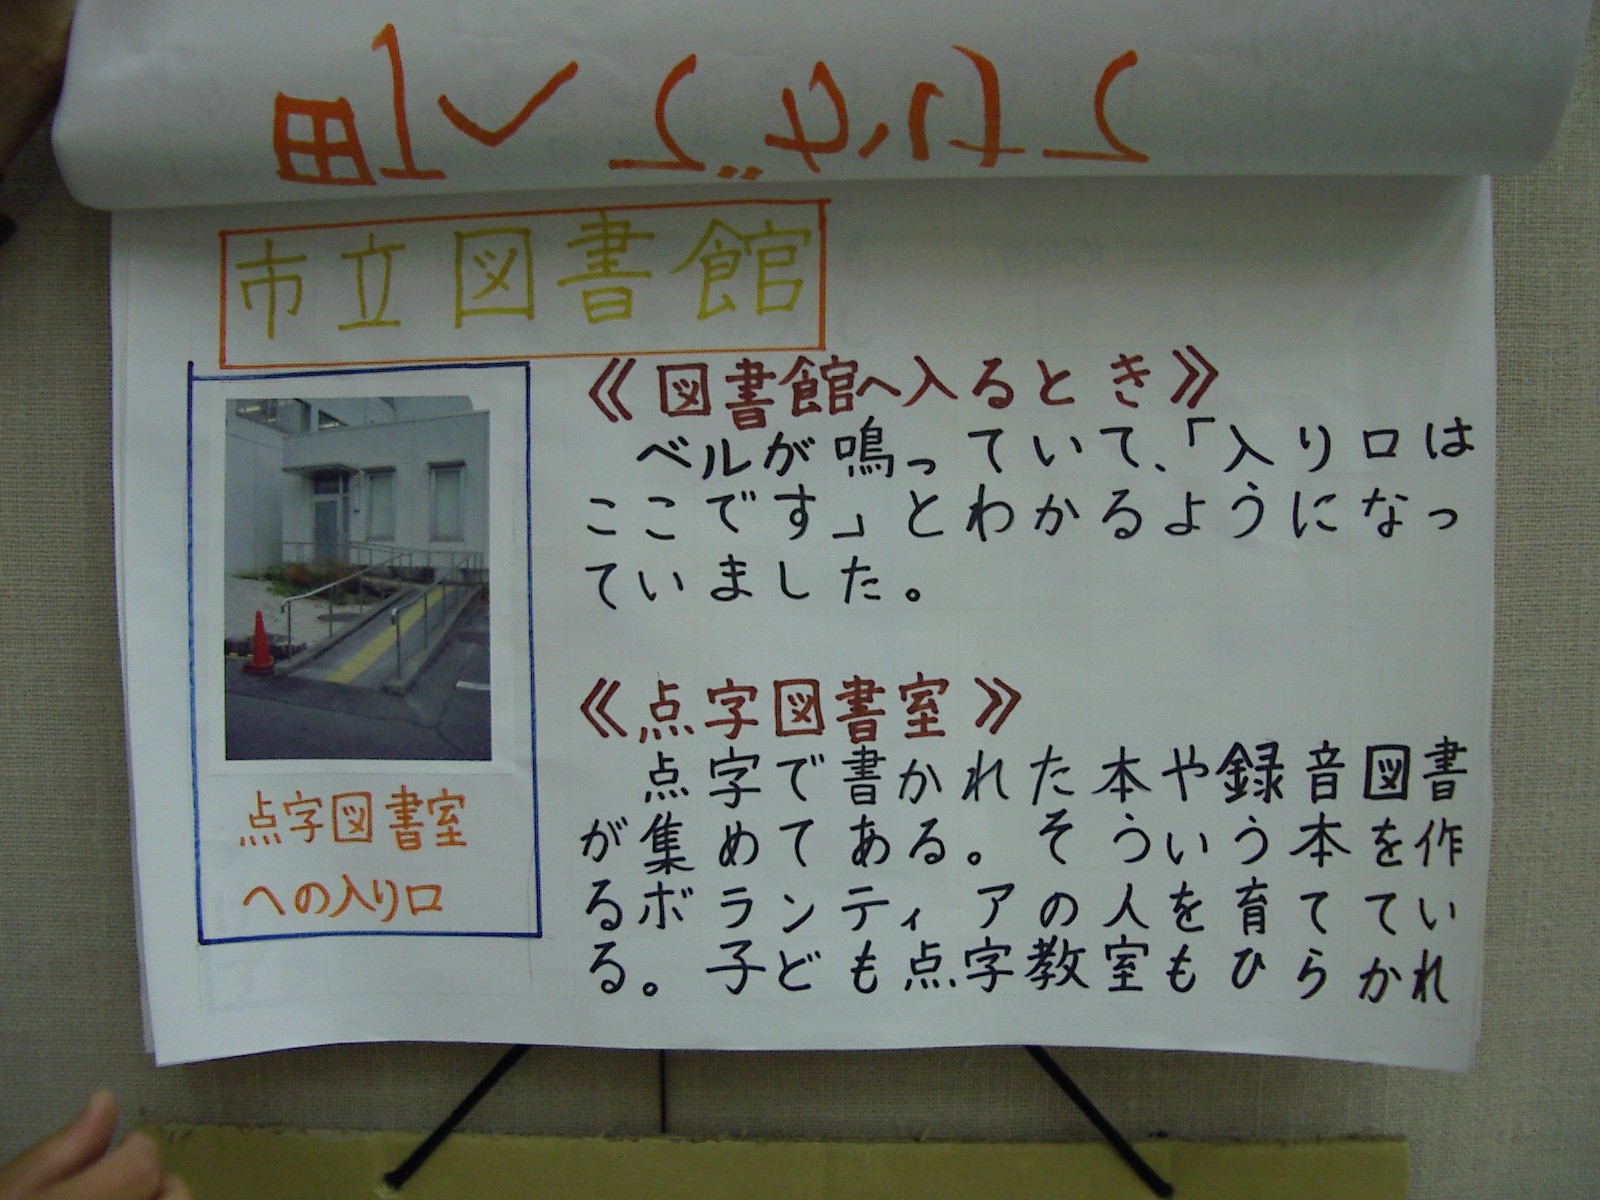 市立図書館
《図書館へ入るとき》
ベルが鳴っていて、「入り口は
ここです」とわかるようになっ
ていました。
《点字図書室》
点字で書かれた本や録音図書
が集めてある。そういう本を作
るボランティアの人を育ててい
る。子ども点字教室もひらかれ
点字図書室
への入り口